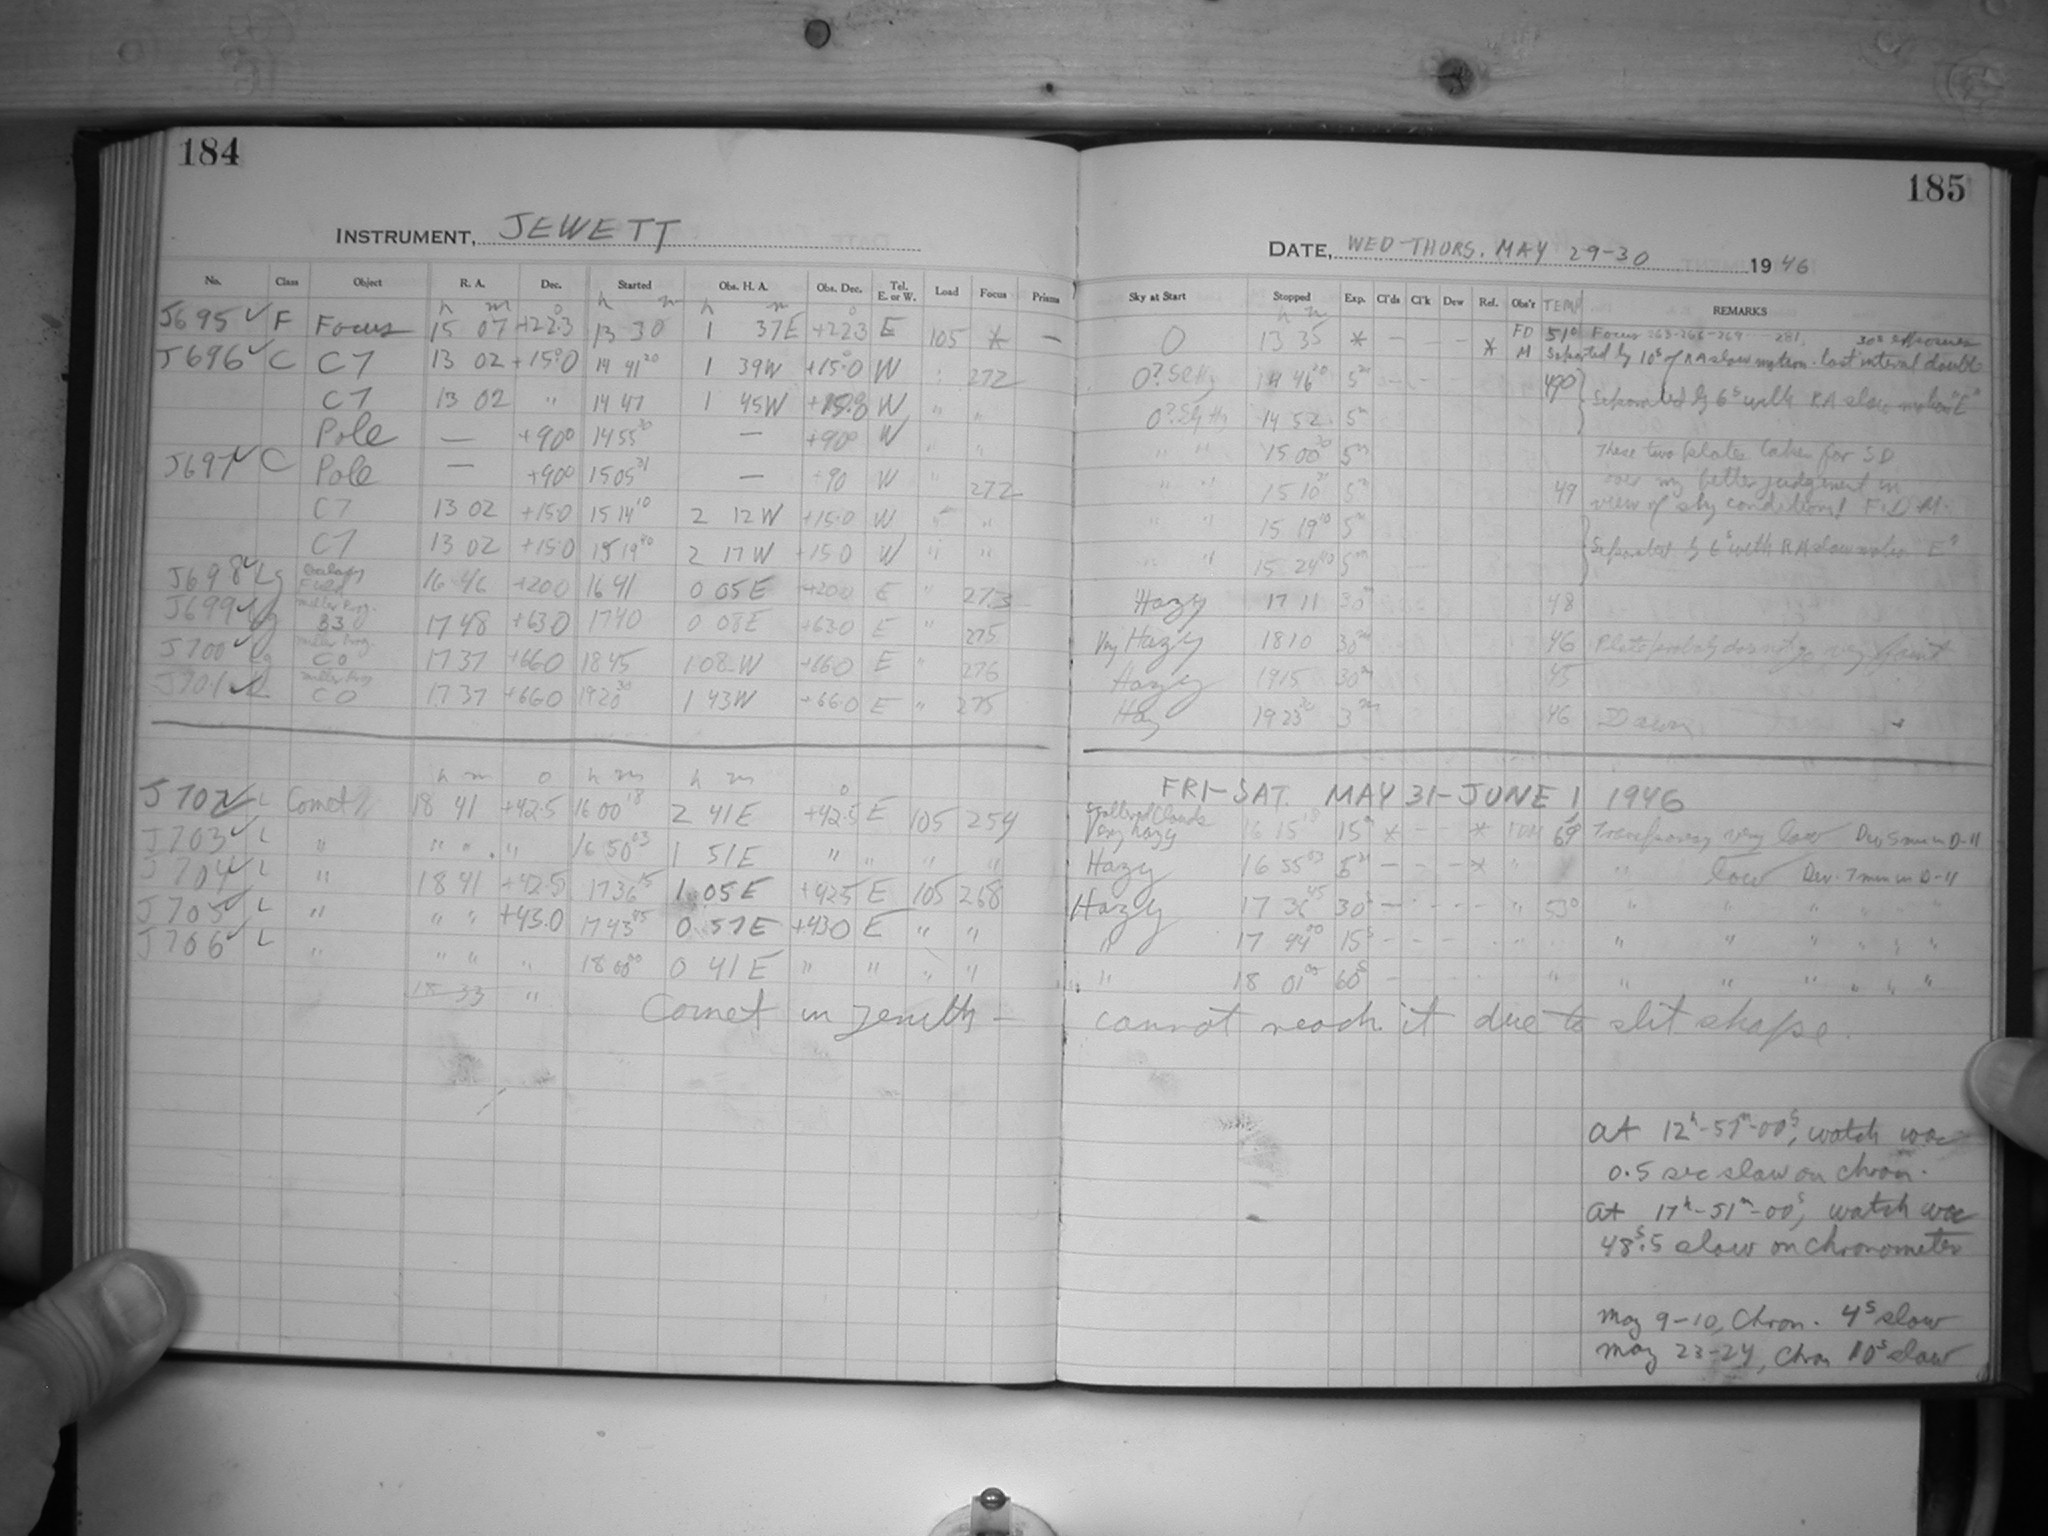 184
185
INSTRUMENT, JEWETT
DATE, WED-THURS. MAY 29-30 1946
No. Class Object R. A. Dec. Started Obs. H. A. Obs. Dec. Tel. E. or W. Load Focus Prisms
Sky at Start Stopped Exp. Cl'ds Cl'k Dew Rel. Obs'r TEMP REMARKS
h m o h m h m o
h m
J695 ✓ F Focus 15 07 +22.3 13 30 1 37E +22.3 E 105 * —
O 13 35 * — — — * FD M 51° Focus 263-266-269 — 281, 30s exposures
Separated by 10s of RA slow motion. Last interval double
J696 ✓ C C7 13 02 +15.0 14 41 20 1 39W +15.0 W " 272
14 46 20 5m — — — 490
C7 13 02 " 14 47 1 45W W " "
14 52 5m Separated by 6s with RA slow motion "E"
Pole — +900 14 55 30 — +900 W " "
" " 15 00 30 5m
J697 ✓ C Pole — +900 15 05 31 — +90 W " 272
" " 15 10 31 5m 49
These two plates taken for SD
over my better judgement in
view of sky conditions! F.D.M.
C7 13 02 +15.0 15 14 10 2 12W +15.0 W " "
" " 15 19 10 5m
C7 13 02 +15.0 15 19 40 2 17W +15.0 W " "
" " 15 24 40 5m Separated by 6s with RA slow motion "E"
J698 ✓ Lg Galaxy Field 16 46 +20.0 16 41 0 05E +20.0 E " 273
Hazy 17 11 30m 48
J699 ✓ Lg Miller Prog. B3 17 48 +63.0 17 40 0 08E +63.0 E " 275
Very Hazy 18 10 30m 46 Plate probably does not go very faint
J700 ✓ Lg Miller Prog. CO 17 37 +66.0 18 45 1 08 W +66.0 E " 276
Hazy 19 15 30m 45
J701 ✓ Miller Prog CO 17 37 +66.0 19 20 30 1 43W +66.0 E " 275
Hazy 19 23 30 3m 46 Dawn
h m o h m h m o
FRI-SAT. MAY 31-JUNE 1 1946
J702 ✓ L Comet 18 41 +42.5 16 00 18 2 41E +42.5 E 105 254
Scattered Clouds
Very hazy 16 15 18 15m * — — * FDM Transparency very low Dev 5 min in D-11
J703 ✓ L " " " " 16 50 03 1 51E " " " "
Hazy 16 55 03 5m — — — * " " low Dev. 7 min in D-11
J704 ✓ L " 18 41 +42.5 17 36 15 1 05E +42.5 E 105 268
Hazy 17 36 45 30s — — — — " 530 " " " " " "
J705 ✓ L " " " +43.0 17 43 45 0 57E +43.0 E " "
" 17 44 00 15s — — — " " " " " "
J706 ✓ L " " " " 18 00 00 0 41E " " " "
" 18 01 00 60s — " " " " " " "
18 33 "
Comet in zenith — cannot reach it due to slit shape.
At 12h-57m-00s, watch was
0.5 sec slow on chron.
At 17h-51m-00s, watch was
48s.5 slow on chronometer
May 9-10, Chron. 4s slow
May 23-24, Chron 10s slow